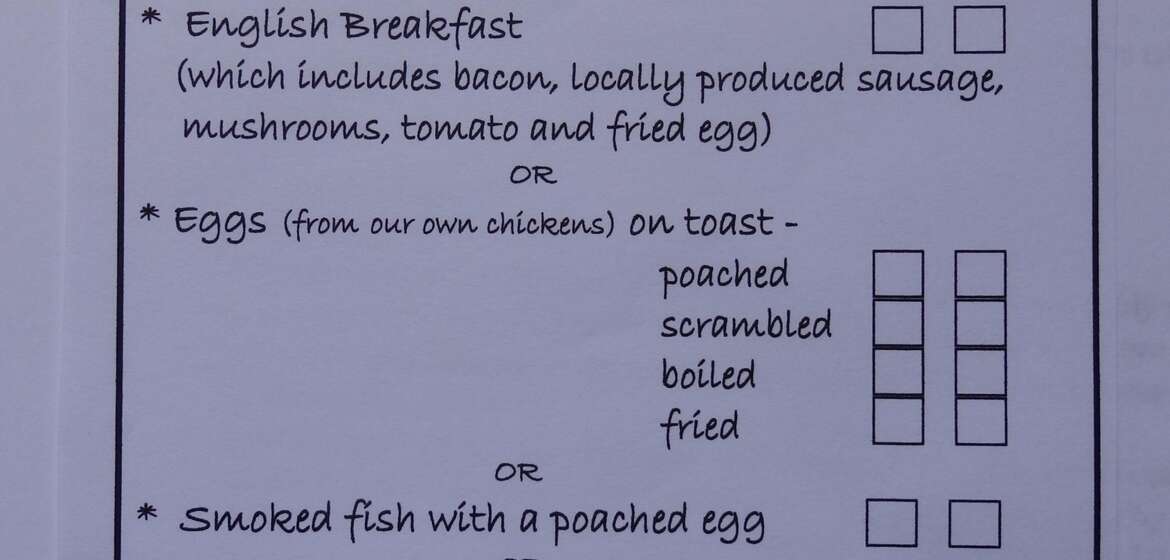 * English Breakfast
(which includes bacon, locally produced sausage,
mushrooms, tomato and fried egg)
OR
* Eggs (from our own chickens) on toast -
poached
scrambled
boiled
fried
OR
* Smoked fish with a poached egg